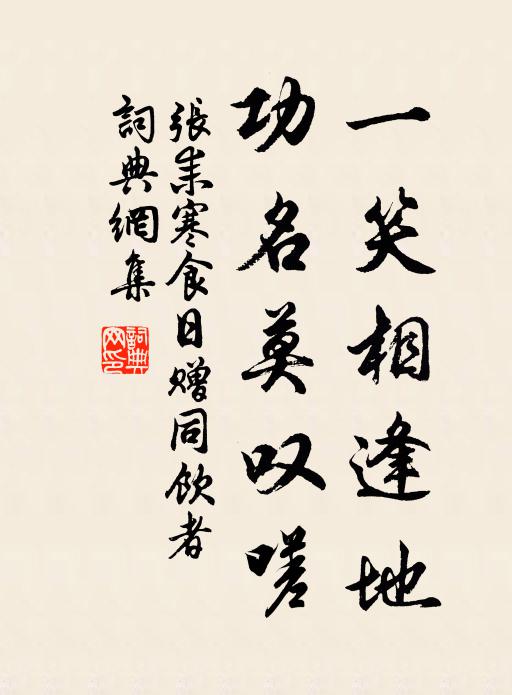 一笑相逢地
功名莫叹嗟
張耒寒食日赠同飲者
詞典網集
詞典網印